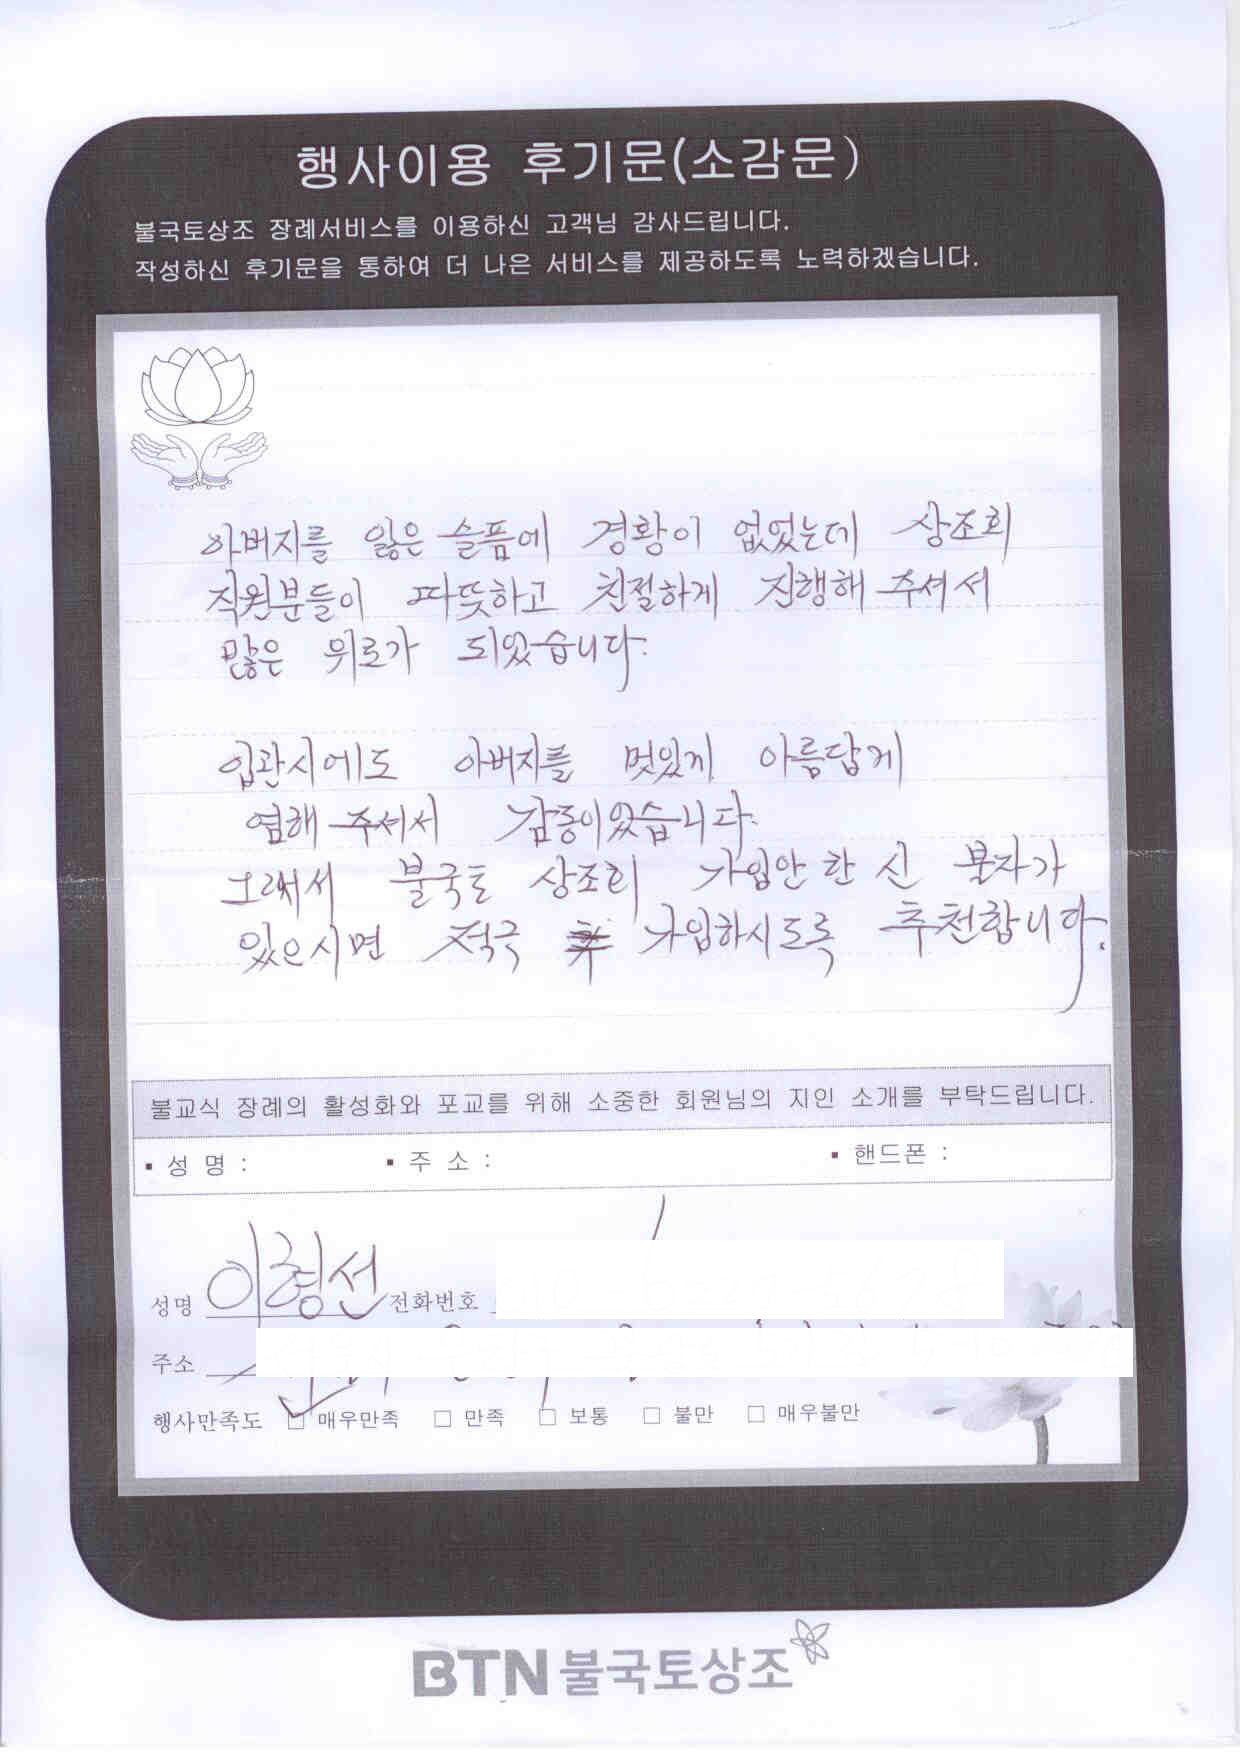 행사이용 후기문(소감문)
불국토상조 장례서비스를 이용하신 고객님 감사드립니다.
작성하신 후기문을 통하여 더 나은 서비스를 제공하도록 노력하겠습니다.
아버지를 잃은 슬픔에 경황이 없었는데 상조회
직원분들이 따뜻하고 친절하게 진행해 주셔서
많은 위로가 되었습니다.
입관시에도 아버지를 멋있게 아름답게
염해 주셔서 감동이었습니다.
그래서 불국토 상조회 가입안 한 신 분자가
있으시면 적극 가입하시도록 추천합니다.
불교식 장례의 활성화와 포교를 위해 소중한 회원님의 지인 소개를 부탁드립니다.
▪ 성 명 : ▪ 주 소 : ▪ 핸드폰 :
성명 이형선 전화번호
주소
행사만족도 ☑ 매우만족 □ 만족 □ 보통 □ 불만 □ 매우불만
BTN 불국토상조